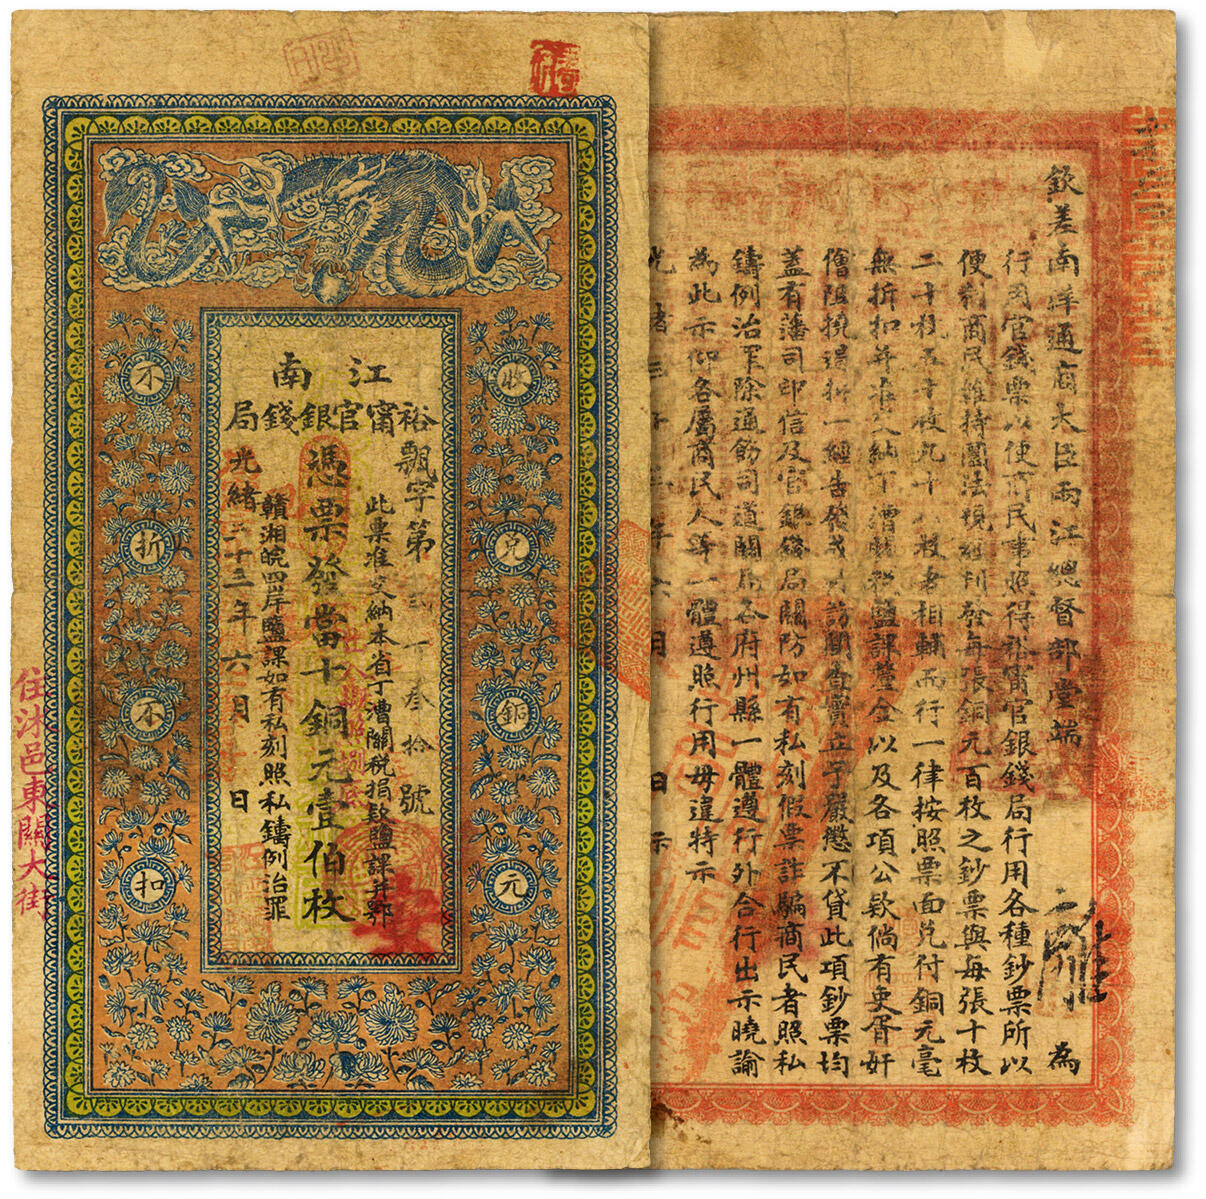 江南
裕甯官銀錢局
飄字第 叁拾號
此票准交納本省丁漕關稅捐款鹽課并鄂
憑票發當十銅元壹伯枚
贛湘皖四岸鹽課如有私刻照私鑄例治罪
光緒三十三年六月 日
收
兌
銅
元
不
折
不
扣
住沭邑東關大街
欽差南洋通商大臣兩江總督部堂端 為
行用官錢票以便商民事照得裕甯官銀錢局行用各種鈔票所以
便利商民維持圜法現經刊發每張銅元百枚之鈔票與每張十枚
二十枚五十枚九十八枚者相輔而行一律按照票面兌付銅元毫
無折扣并准交納丁漕關稅鹽課釐金以及各項公款倘有吏胥奸
儈阻撓 折一經告發或 訪聞查實立予嚴懲不貸此項鈔票均
蓋有藩司印信及官銀錢局關防如有私刻假票詐騙商民者照私
鑄例治罪除通飭司道關局各府州縣一體遵行外合行出示曉諭
為此示仰各屬商民人等一體遵照行用毋違特示
光緒三十三年六月 日示